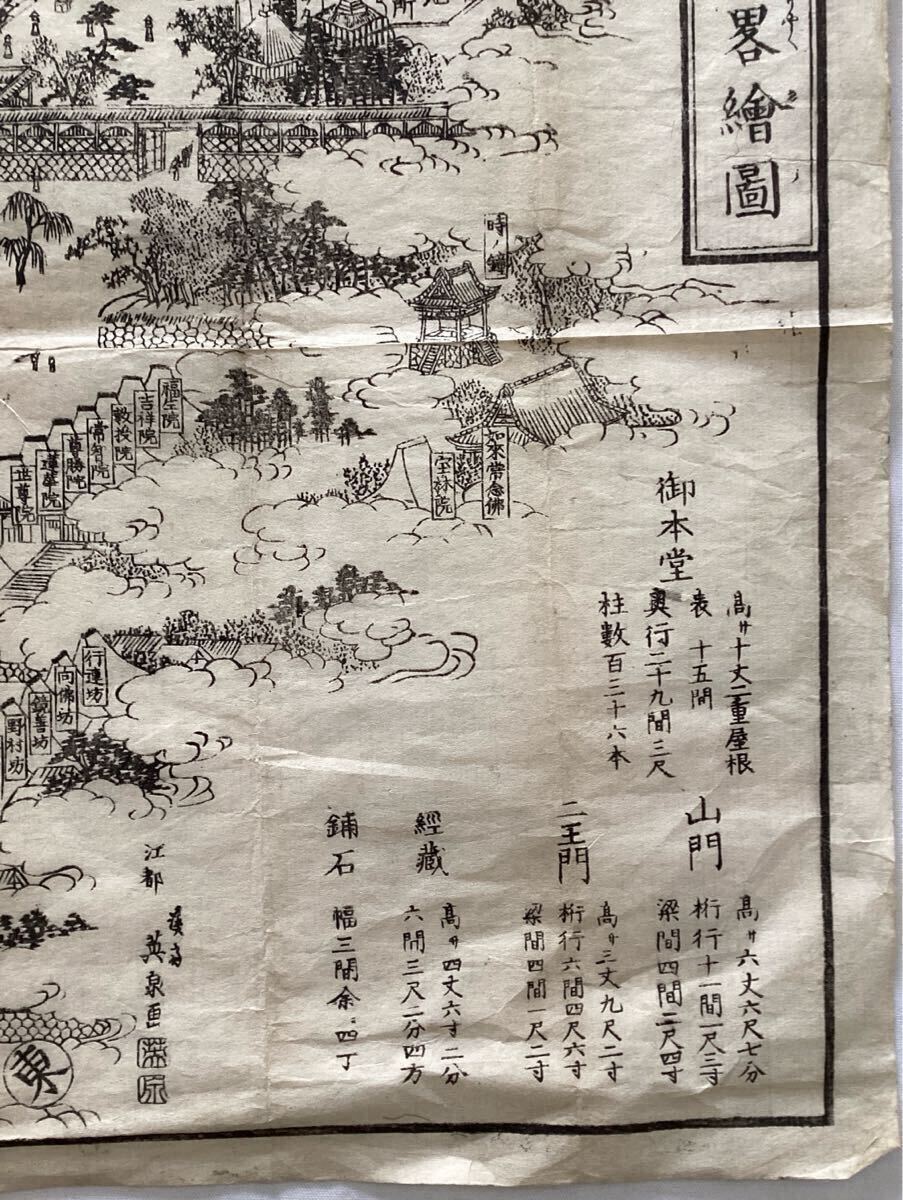 畧繪圖
所
時ノ鐘
如來常念佛
堂林院
福生院
吉祥院
教授院
常智院
尊勝院
蓮華院
世尊院
行蓮坊
向佛坊
鏡善坊
野村坊
御本堂
高サ十丈二重屋根
表 十五間
奥行二十九間三尺
柱數百三十六本
山門
高サ六丈六尺七分
桁行十一間一尺三寸
梁間四間二尺四寸
二王門
高サ三丈九尺二寸
桁行六間四尺六寸
梁間四間一尺二寸
經藏
高サ四丈六寸二分
六間三尺二分四方
鋪石
幅三間余
四丁
江都
英泉画
東